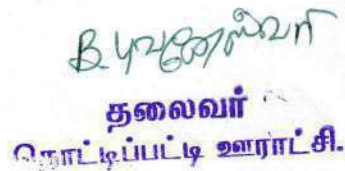 B. புவனேஸ்வரி
தலைவர்
தொட்டிப்பட்டி ஊராட்சி.